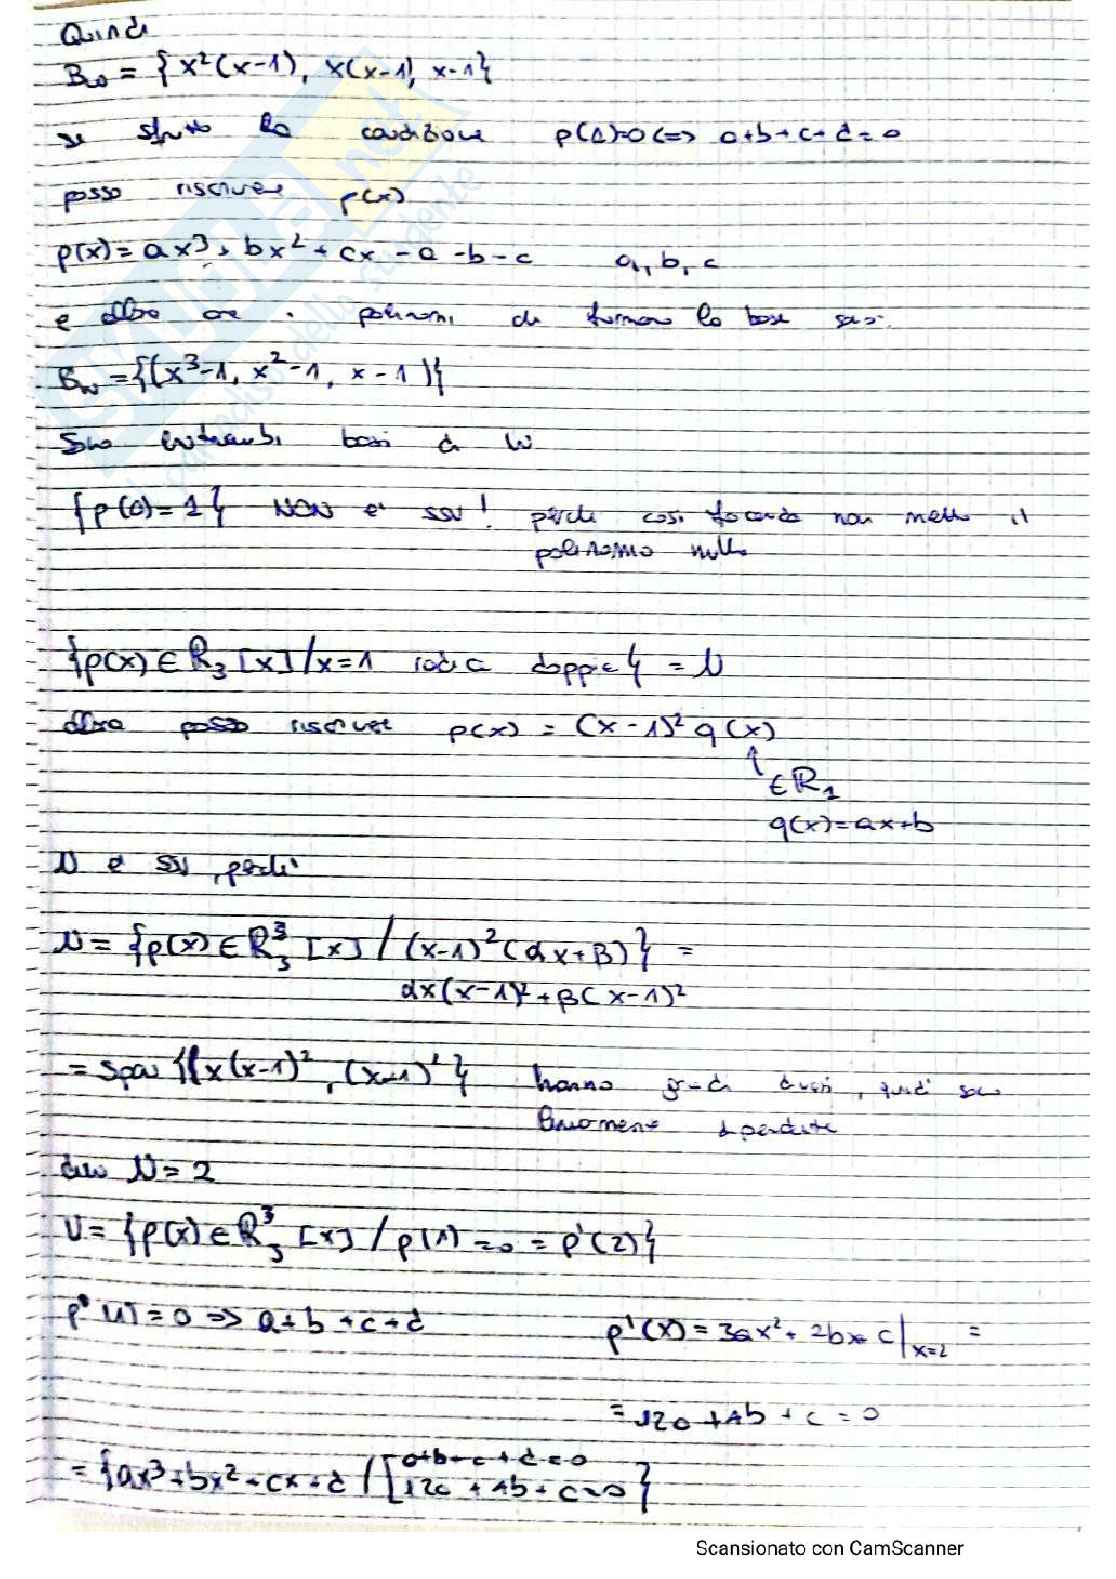 Quindi
B_W = { x²(x-1), x(x-1), x-1}
se sfrutto la condizione p(1)=0 <=> a+b+c+d=0
posso riscrivere p(x)
p(x) = ax³ + bx² + cx - a - b - c a, b, c
e allora ora i polinomi che formano la base sono:
B_W = {(x³-1, x²-1, x-1)}
Sono entrambi basi di W
{p(0)=1} NON è ssv! perché così facendo non metto il
polinomo nullo
{p(x) ∈ R₃[x] / x=1 radice doppia} = N
allora posso riscrivere p(x) = (x-1)² q(x)
↑
∈ R₁
q(x)=ax+b
N è ssv, perché
N = {p(x) ∈ R³₃ [x] / (x-1)²(αx+β)} =
αx(x-1)² + β(x-1)²
= span {(x(x-1)², (x-1)²} hanno gradi diversi, quindi sono
linearmente
dim N = 2
U = {p(x) ∈ R³₃ [x] / p(1) = 0 = p'(2)}
p(1) = 0 => a+b+c+d p'(x) = 3ax² + 2bx + c|ₓ₌₂ =
= 12a + 4b + c = 0
= {ax³+bx²+cx+d / [a+b+c+d=0
12a + 4b + c = 0}
Scansionato con CamScanner